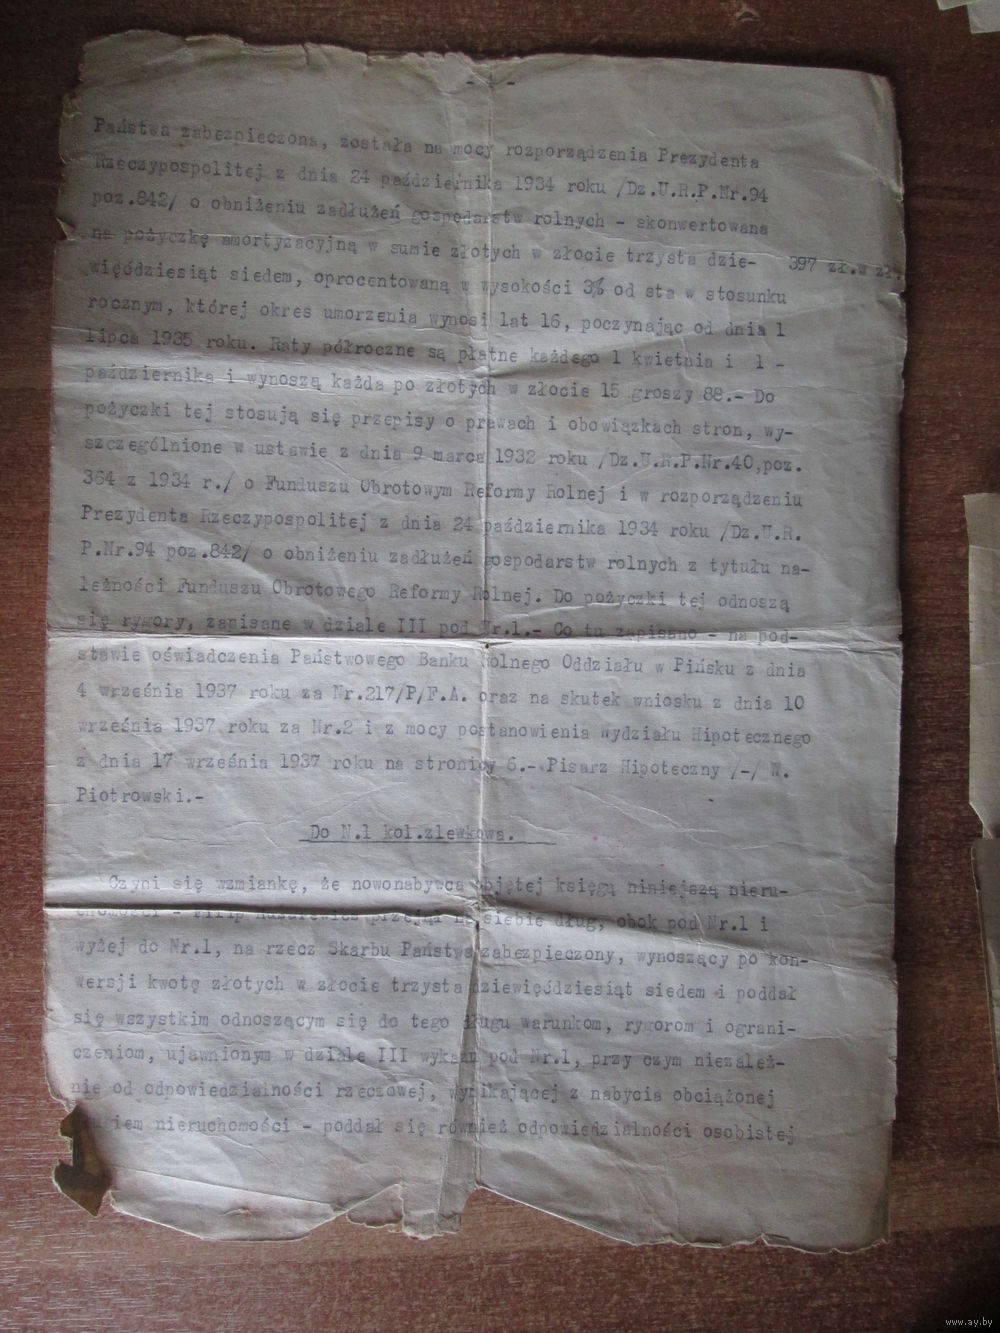 Państwa zabezpieczona, została na mocy rozporządzenia Prezydenta
Rzeczypospolitej z dnia 24 października 1934 roku /Dz.U.R.P.Nr.94
poz.842/ o obniżeniu zadłużeń gospodarstw rolnych - skonwertowana
na pożyczkę amortyzacyjną w sumie złotych w złocie trzysta dzie- 397 zł.w zł.
więćdziesiąt siedem, oprocentowaną w wysokości 3% od sta w stosunku
rocznym, której okres umorzenia wynosi lat 16, poczynając od dnia 1
lipca 1935 roku. Raty półroczne są płatne każdego 1 kwietnia i 1 -
października i wynoszą każda po złotych w złocie 15 groszy 88.- Do
pożyczki tej stosują się przepisy o prawach i obowiązkach stron, wy-
szczególnione w ustawie z dnia 9 marca 1932 roku /Dz.U.R.P.Nr.40,poz.
364 z 1934 r./ o Funduszu Obrotowym Reformy Rolnej i w rozporządzeniu
Prezydenta Rzeczypospolitej z dnia 24 października 1934 roku /Dz.U.R.
P.Nr.94 poz.842/ o obniżeniu zadłużeń gospodarstw rolnych z tytułu na-
leżności Funduszu Obrotowego Reformy Rolnej. Do pożyczki tej odnoszą
się rygory, zapisane w dziale III pod Nr.1.- Co tu zapisano - na pod-
stawie oświadczenia Państwowego Banku Rolnego Oddziału w Pińsku z dnia
4 września 1937 roku za Nr.217/P/F.A. oraz na skutek wniosku z dnia 10
września 1937 roku za Nr.2 i z mocy postanowienia Wydziału Hipotecznego
z dnia 17 września 1937 roku na stronicy 6.- Pisarz Hipoteczny /-/ W.
Piotrowski.-
Do N.1 kol.zlewkowa.
Czyni się wzmiankę, że nowonabywca objętej księgą niniejszą nieru-
chomości - Filip przejął na siebie dług, obok pod Nr.1 i
wyżej do Nr.1, na rzecz Skarbu Państwa zabezpieczony, wynoszący po kon-
wersji kwotę złotych w złocie trzysta dziewięćdziesiąt siedem i poddał
się wszystkim odnoszącym się do tego długu warunkom, rygorom i ograni-
czeniom, ujawnionym w dziale III wykazu pod Nr.1, przy czym niezależ-
nie od odpowiedzialności rzeczowej, wynikającej z nabycia obciążonej
długiem nieruchomości - poddał się również odpowiedzialności osobistej
www.ay.by